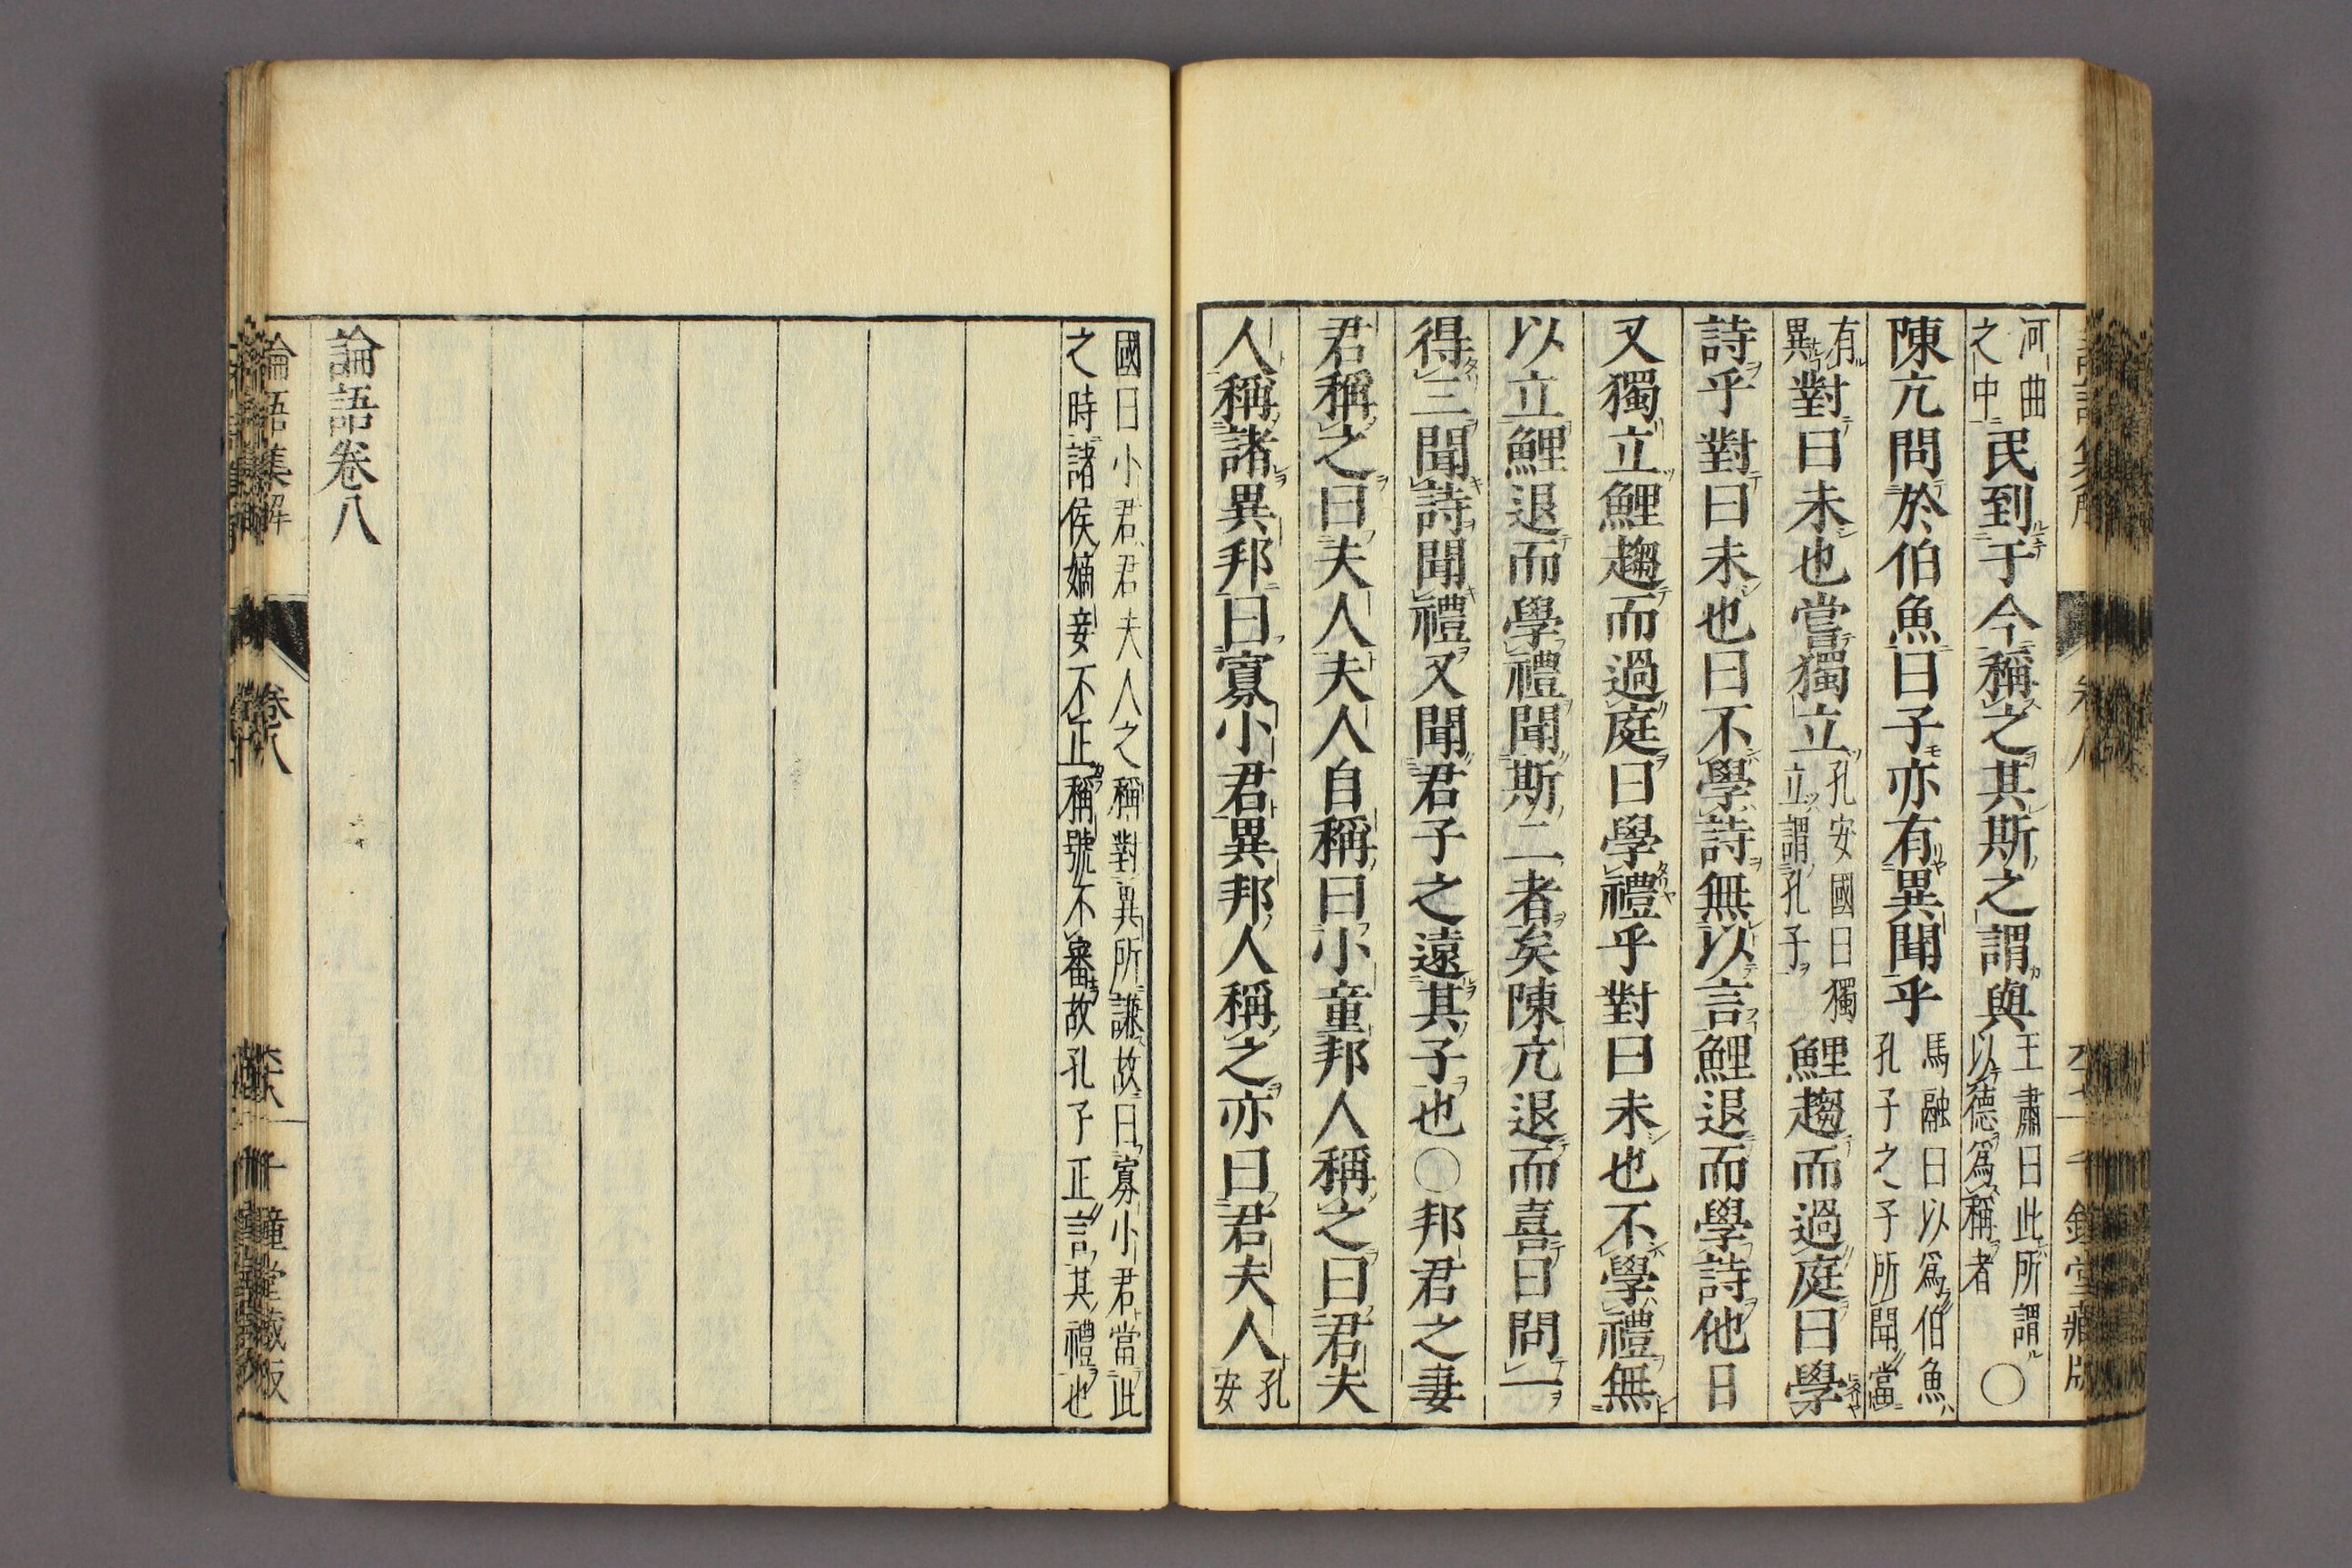 河曲
之中
民到于今稱之其斯之謂與
王肅曰此所謂
以德爲稱者
〇
陳亢問於伯魚曰子亦有異聞乎
馬融曰以爲伯魚
孔子之子所聞當
有
異
對曰未也嘗獨立
孔安國曰獨
立謂孔子
鯉趨而過庭曰學
詩乎對曰未也曰不學詩無以言鯉退而學詩他日
又獨立鯉趨而過庭曰學禮乎對曰未也不學禮無
以立鯉退而學禮聞斯二者矣陳亢退而喜曰問一
得三聞詩聞禮又聞君子之遠其子也〇邦君之妻
君稱之曰夫人夫人自稱曰小童邦人稱之曰君夫
人稱諸異邦曰寡小君異邦人稱之亦曰君夫人
孔
安
國曰小君君夫人之稱對異所謙故曰寡小君當此
之時諸侯嫡妾不正稱號不審故孔子正言其禮也
論語卷八
論語集解 卷八